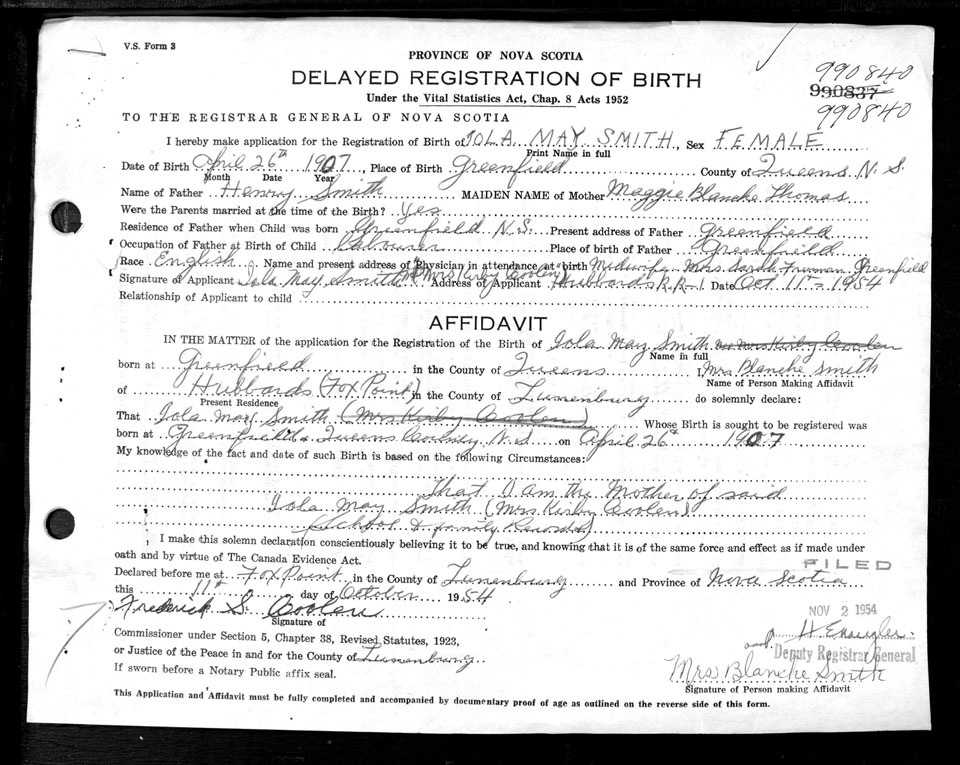 V.S. Form 3
PROVINCE OF NOVA SCOTIA
DELAYED REGISTRATION OF BIRTH
Under the Vital Statistics Act, Chap. 8 Acts 1952
990840
990837
990840
TO THE REGISTRAR GENERAL OF NOVA SCOTIA
I hereby make application for the Registration of Birth of IOLA MAY SMITH, Sex FEMALE
Print Name in full
Date of Birth April 26th 1907, Place of Birth Greenfield County of Queens N.S.
Month Date Year
Name of Father Henry Smith MAIDEN NAME of Mother Maggie Blanche Thomas
Were the Parents married at the time of the Birth? Yes
Residence of Father when Child was born Greenfield N.S. Present address of Father Greenfield
Occupation of Father at Birth of Child Labourer Place of birth of Father Greenfield
Race English Name and present address of Physician in attendance at birth Midwife Mrs Sarah Freeman Greenfield
Signature of Applicant Iola May Smith (Mrs Kirby Coolen) Address of Applicant Hubbards R.R.1 Date Oct 11th 1954
Relationship of Applicant to child
AFFIDAVIT
IN THE MATTER of the application for the Registration of the Birth of Iola May Smith Mrs Kirby Coolen
Name in full
born at Greenfield in the County of Queens I, Mrs Blanche Smith
Name of Person Making Affidavit
of Hubbards (Fox Point) in the County of Lunenburg do solemnly declare:
Present Residence
That Iola May Smith (Mrs Kirby Coolen) Whose Birth is sought to be registered was
born at Greenfield Queens County N.S. on April 26th 1907
My knowledge of the fact and date of such Birth is based on the following Circumstances:
That I am the Mother of said
Iola May Smith (Mrs Kirby Coolen)
(School & family Records)
I make this solemn declaration conscientiously believing it to be true, and knowing that it is of the same force and effect as if made under
oath and by virtue of The Canada Evidence Act.
FILED
Declared before me at Fox Point in the County of Lunenburg and Province of Nova Scotia
this 11th day of October 1954
NOV 2 1954
Frederick S. Coolen
Signature of
Commissioner under Section 5, Chapter 38, Revised Statutes, 1923,
or Justice of the Peace in and for the County of Lunenburg
Deputy Registrar General
If sworn before a Notary Public affix seal.
Mrs Blanche Smith
Signature of Person making Affidavit
This Application and Affidavit must be fully completed and accompanied by documentary proof of age as outlined on the reverse side of this form.